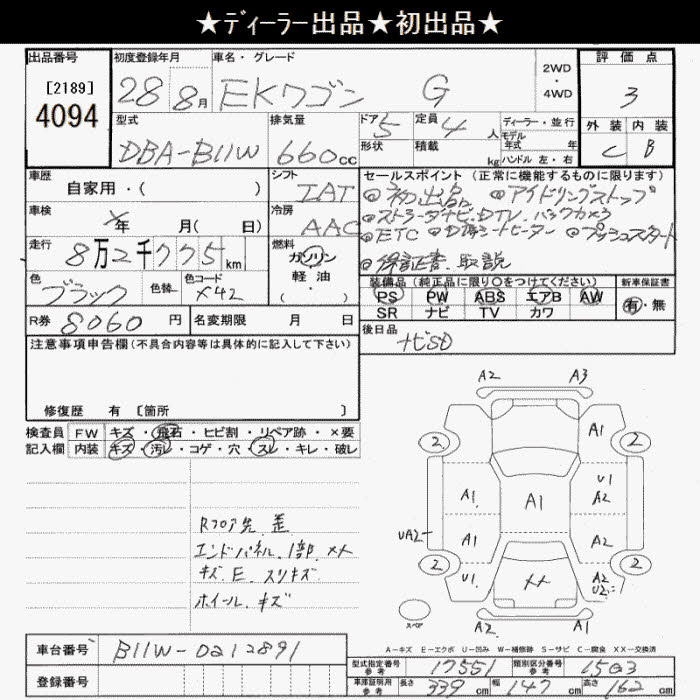 ★ディーラー出品★初出品★
出品番号 初度登録年月 車名・グレード 2WD ・ 4WD 評価点
[2189] 4094 28 8月 EKワゴン G 3
型式 排気量 ドア 5 定員 4人 ディーラー・並行 外装 内装
DBA-B11W 660cc 形状 積載 kg モデル年式 年 ハンドル 左・右 C B
車歴 シフト セールスポイント (正常に機能するものに限ります)
自家用・( ) IAT ◎初出品 ◎アイドリングストップ
車検 年 月( 日) 冷房 AAC ◎ストラーダナビ.DTV.バックカメラ
走行 8万2千775km 燃料 ガソリン 軽・油 ・( ) ◎ETC ◎D席シートヒーター ◎プッシュスタート
◎保証書.取説
色 ブラック 色替 色コード X42 装備品 (純正品に限り○をつけてください) 新車保証書
PS PW ABS エアB AW 有・無
SR ナビ TV カワ
R券 8060円 名変期限 月 日 後日品 ナビSD
注意事項申告欄(不具合内容等は具体的に記入して下さい)
修復歴 有 [箇所 ]
検査員 FW キズ・飛石・ヒビ割・リペア跡・×要
記入欄 内装 キズ・汚レ・コゲ・穴・スレ・キレ・破レ
A2 A3
2 A1 2
U1
A1 A1 A2
UA2
A1 A2
2 U1 XX A2 U2 2
スペア A2 A2
Rフロア先 歪
エンドパネル.1部.XX
キズ E.スリキズ
ホイール.キズ
A-キズ E-エクボ U-凹み W-補修跡 S-サビ C-腐食 XX-交換済
車台番号 B11W-0212891
型式指定番号 参考 17551 類別区分番号 参考 1503
登録番号
車庫証明用 参考 長さ 339cm 幅 147cm 高さ 162cm